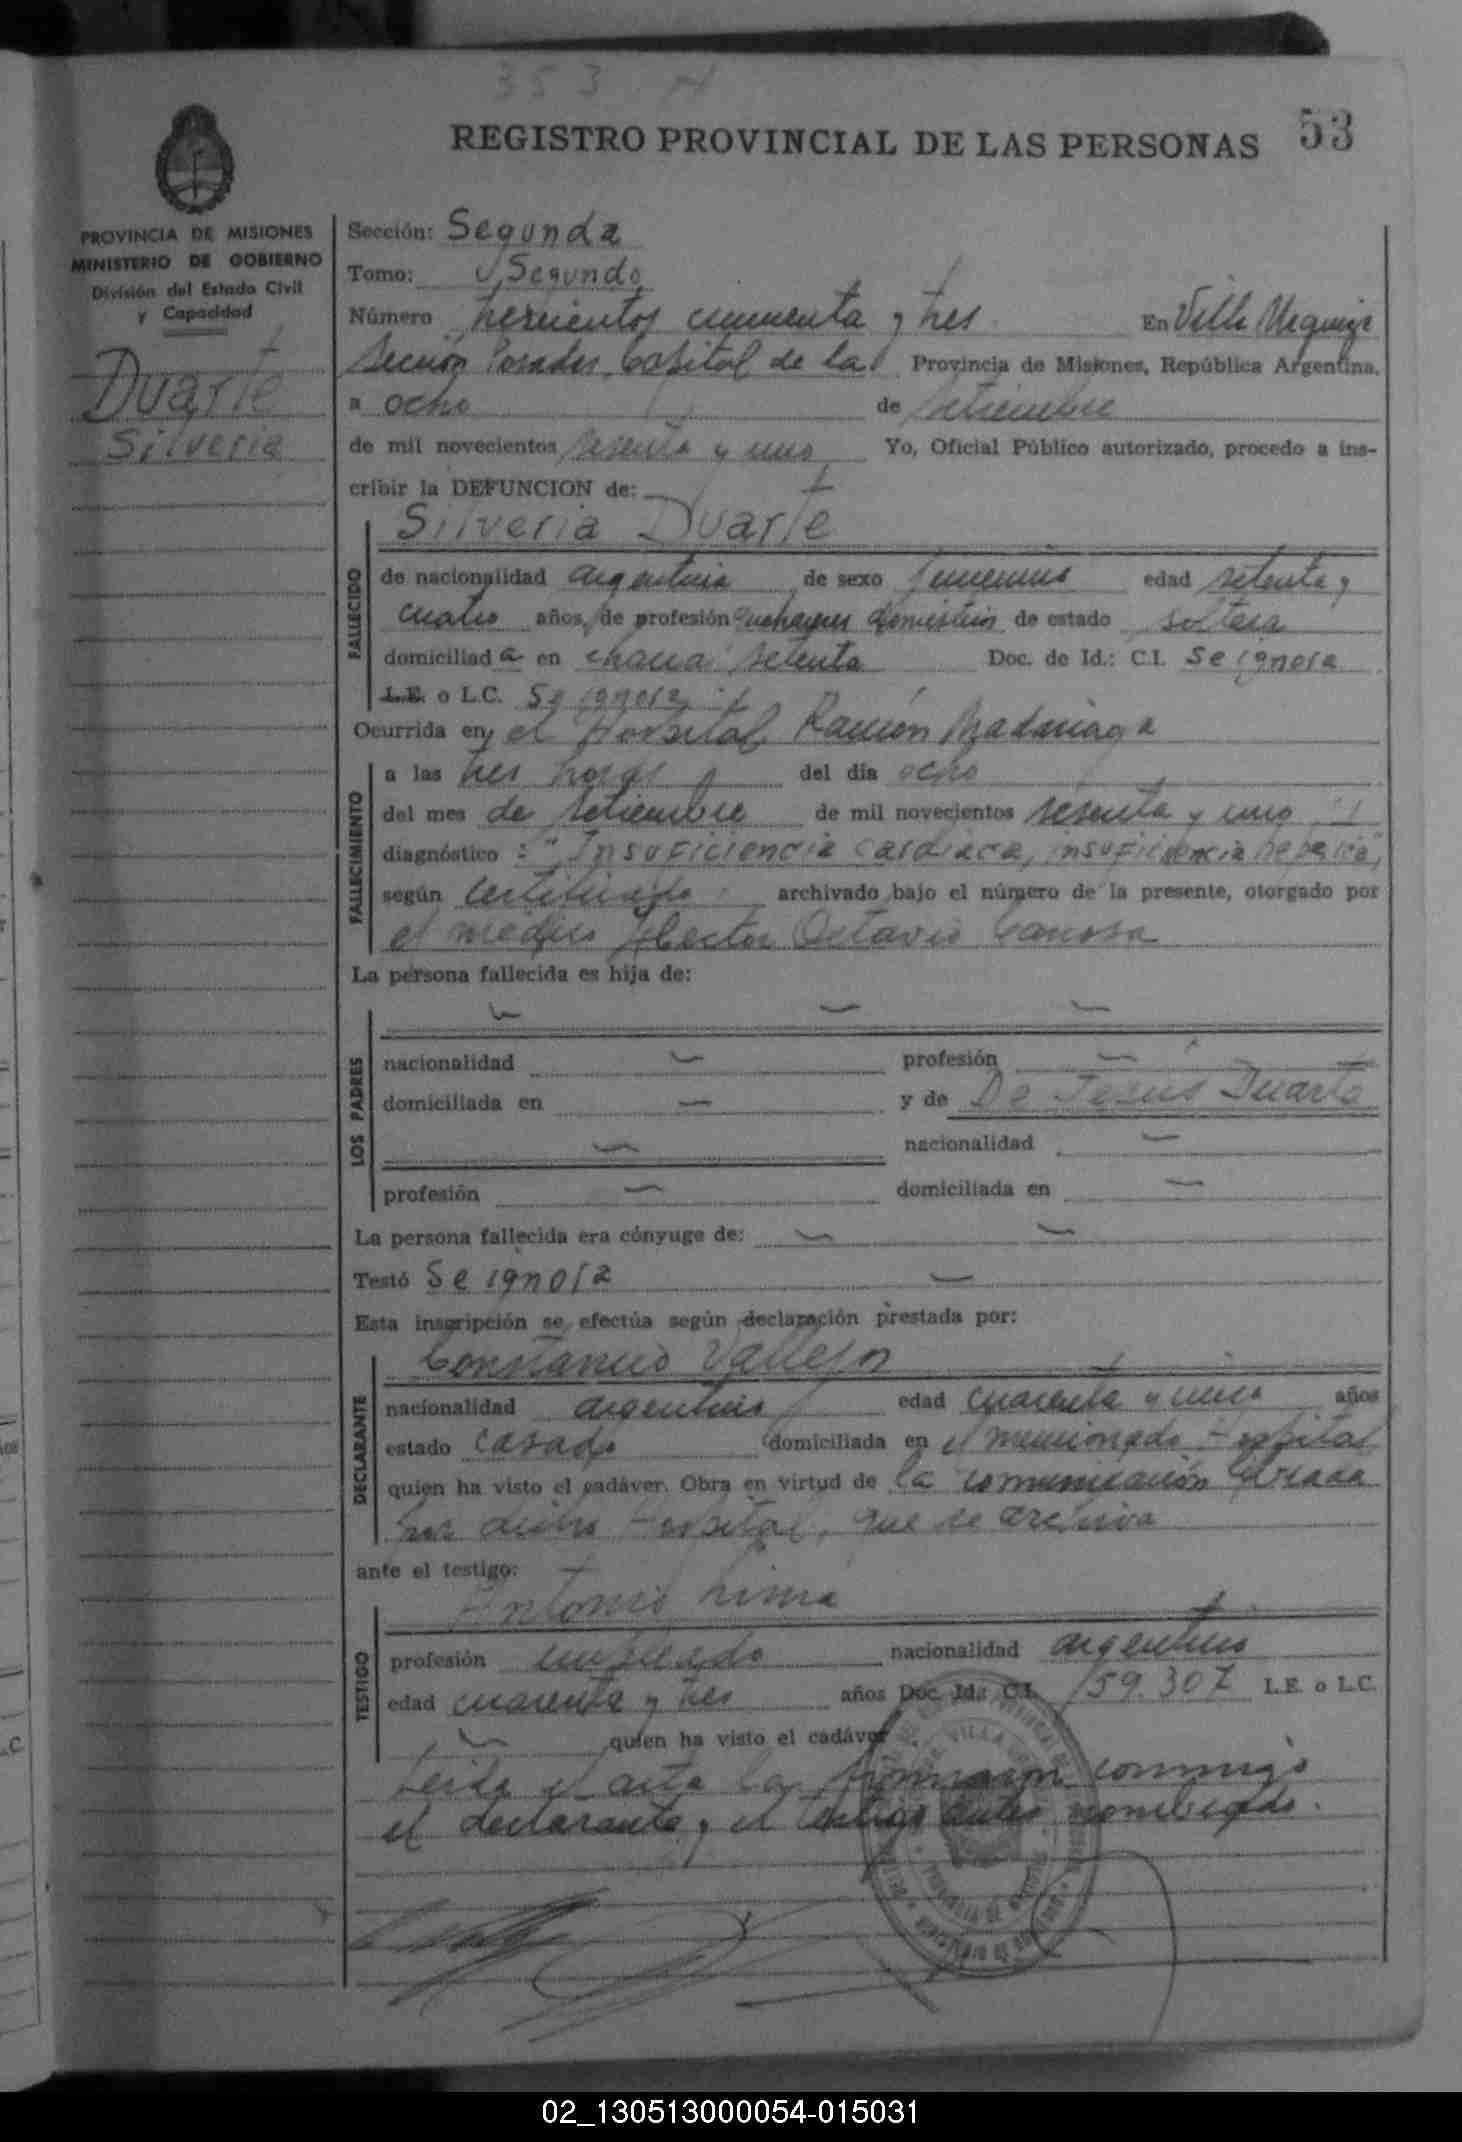 353
REGISTRO PROVINCIAL DE LAS PERSONAS 53
PROVINCIA DE MISIONES
MINISTERIO DE GOBIERNO
División del Estado Civil
y Capacidad
Duarte
Silveria
Sección: Segunda
Tomo: Segundo
Número trescientos cincuenta y tres En Villa Urquiza
Sección Posadas Capital de la Provincia de Misiones, República Argentina,
a ocho de setiembre
de mil novecientos sesenta y uno Yo, Oficial Público autorizado, procedo a ins-
cribir la DEFUNCION de:
Silveria Duarte
FALLECIDO
de nacionalidad argentina de sexo femenino edad setenta y
cuatro años, de profesión quehaceres domésticos de estado soltera
domiciliada en chacra setenta Doc. de Id.: C.I. Se ignora
L.E. o L.C. Se ignora
Ocurrida en el Hospital Ramón Madariaga
FALLECIMIENTO
a las tres horas del día ocho
del mes de setiembre de mil novecientos sesenta y uno
diagnóstico : "Insuficiencia cardiaca, insuficiencia hepatica",
según certificado archivado bajo el número de la presente, otorgado por
el médico Hector Octavio Canosa
La persona fallecida es hija de:
LOS PADRES
nacionalidad — profesión —
domiciliada en — y de De Jesús Duarte
— nacionalidad —
profesión — domiciliada en —
La persona fallecida era cónyuge de: — —
Testó Se ignora —
Esta inscripción se efectúa según declaración prestada por:
Constancio Vallejos
DECLARANTE
nacionalidad argentino edad cuarenta y uno años
estado casado domiciliada en el mencionado Hospital
quien ha visto el cadáver. Obra en virtud de la comunicación librada
por dicho Hospital, que se archiva
ante el testigo:
Antonio Lima
TESTIGO
profesión empleado nacionalidad argentino
edad cuarenta y tres años Doc. Id.: C.I. 159.307 L.E. o L.C.
— quien ha visto el cadáver
Leida el acta la firmaron conmigo
el declarante y el testigo antes nombrado.
02_130513000054-015031